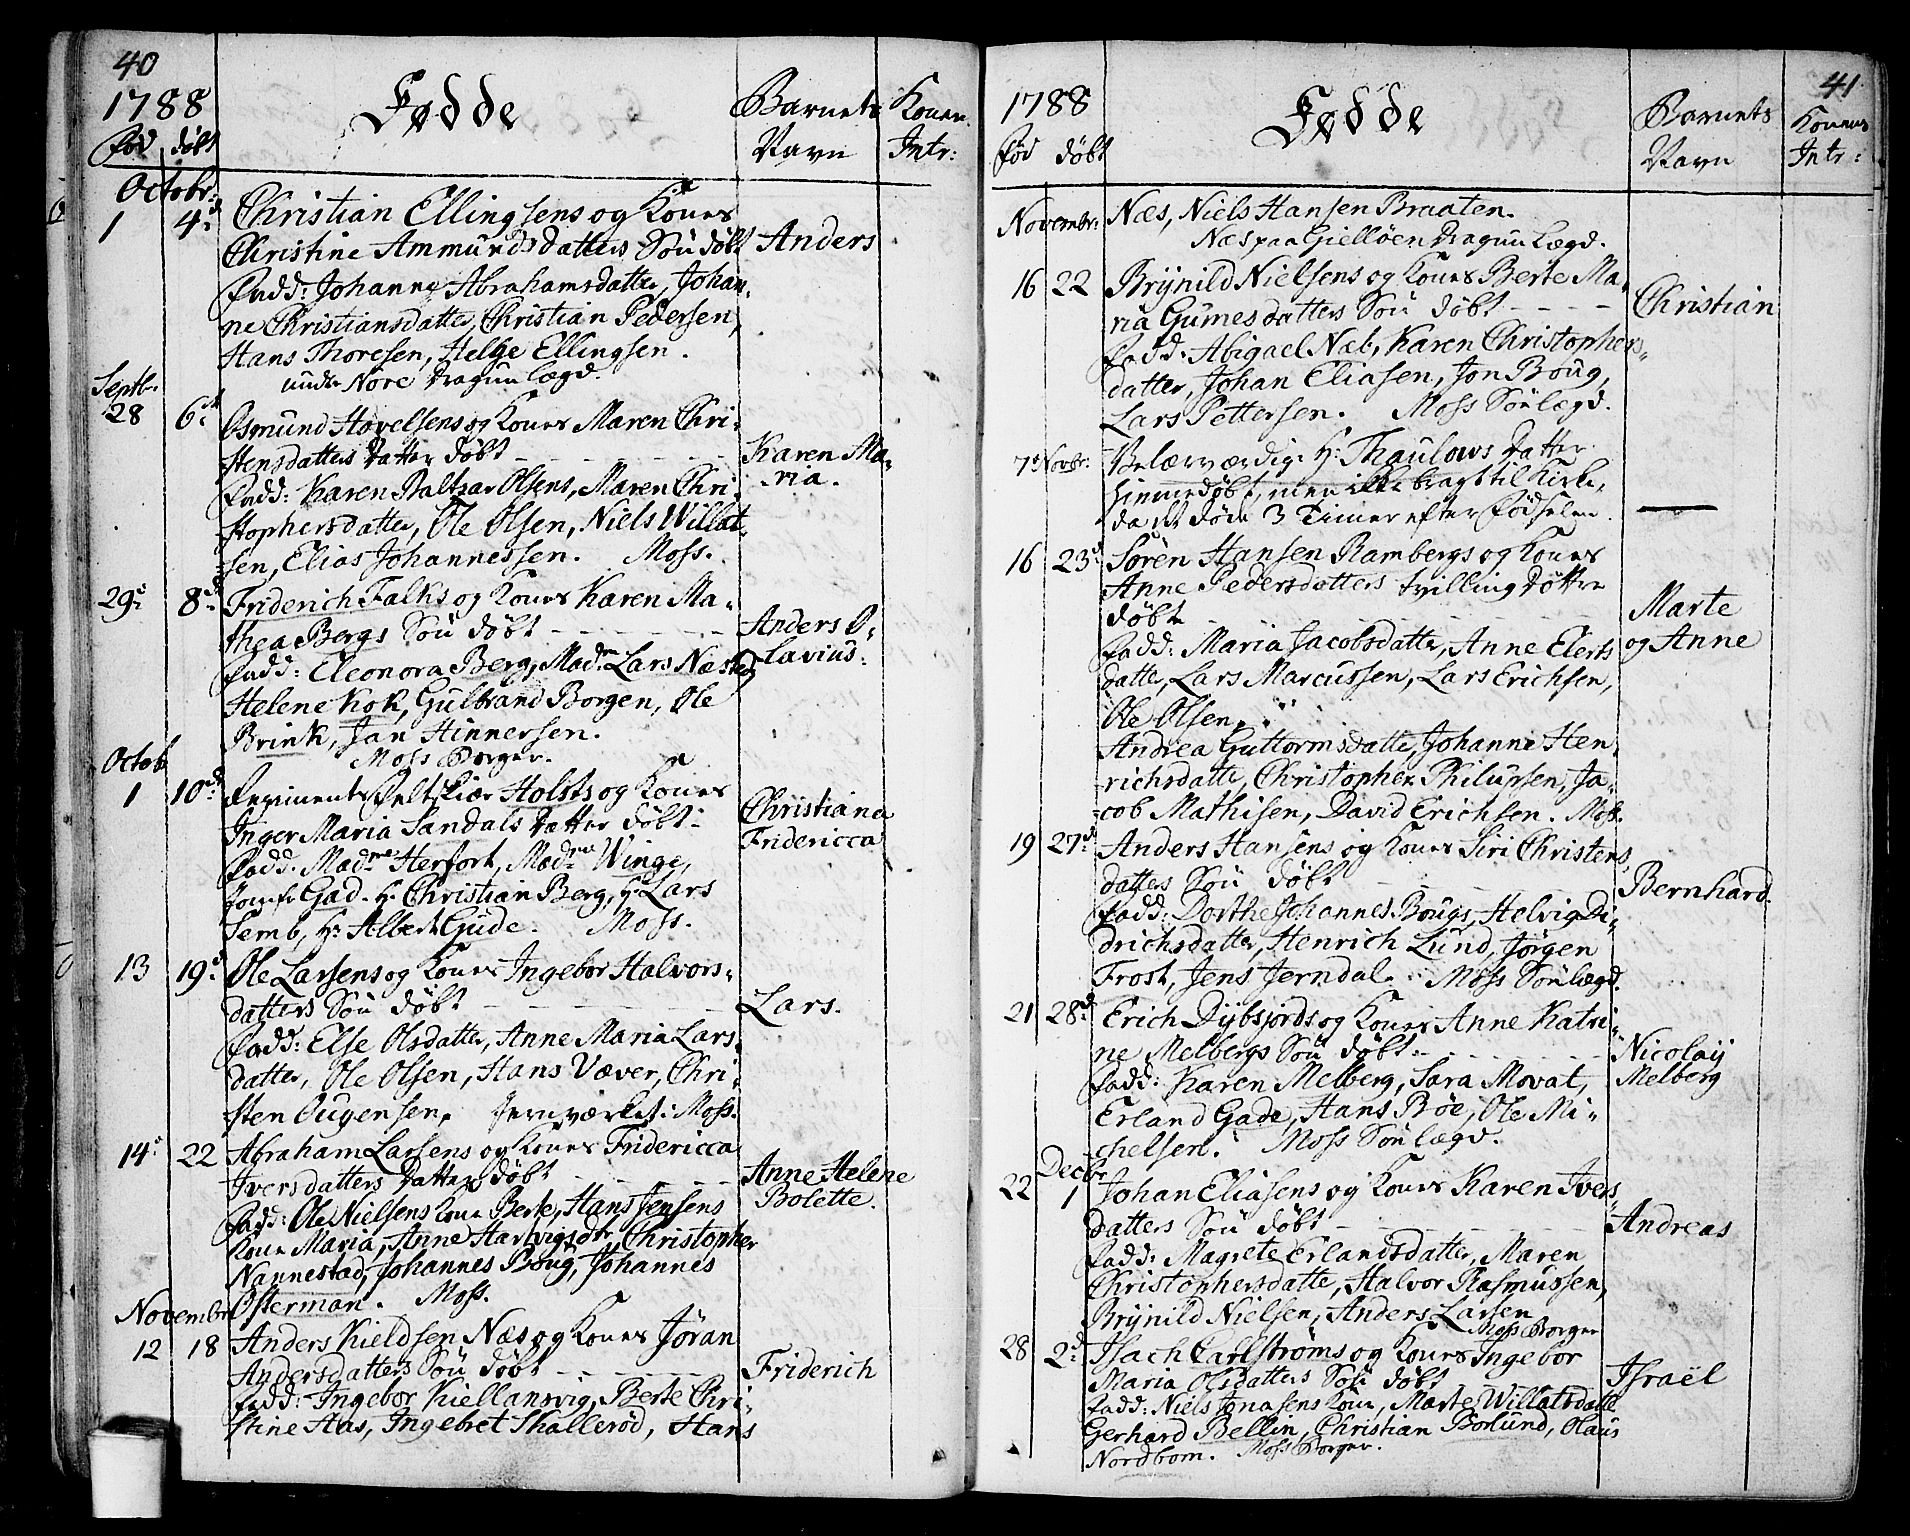 40
1788
Fødde
Barnets
Navn
Konen
Intr:
fød døbt
Octobr:
1 4d
Christian Ellingsens og Kones
Christine Ammundsdatters Søn døbt
Anders
Fadd: Johanne Abrahamsdatter, Johan-
ne Christiansdatter, Christian Pedersen,
Hans Thoresen, Helge Ellingsen.
under Nore Dragun Lægd.
Septbr.
28 6d
Osmund Hovelsens og Kones Maren Chri-
stensdatters Datter døbt
Karen Ma-
ria.
Fadd: Karen Baltzar Olsens, Maren Chri-
stophersdatter, Ole Olsen, Niels Willat-
sen, Elias Johannessen. Moss.
29d 8d
Friderich Falks og Kones Karen Ma-
thea Bergs Søn døbt
Anders O-
lavius.
Fadd: Eleonora Berg, Madm Lars Næsted
Helene Kok, Gulbrand Borgen, Ole
Brink, Jan Hinnersen.
Moss Borger.
Octob
1 10d
Regiments Feltskiær Holsts og Kones
Inger Maria Sandals Datter døbt
Christiana
Fridericca
Fadd. Madme Herfort, Madme Winge,
Jomfr Gad. Hr Christian Berg, Hr Lars
Semb, Hr Albert Gude. Moss.
13 19d
Ole Larsens og Kones Ingebor Halvors-
datters Søn døbt
Lars.
Fadd: Else Olsdatter, Anne Maria Lars-
datter, Ole Olsen, Hans Væver, Chri-
sten Ougensen, Jernværket: Moss.
14d 22
Abraham Larsens og Kones Fridericca
Iversdatters Datter døbt
Anne Helene
Bolette.
Fadd: Ole Nielsens Kone Berte, Hans Jensens
Kone Maria, Anne Hartvigsdtr, Christopher
Nannestad, Johannes Boug, Johannes
Osterman. Moss.
Novembr
12 18
Anders Kieldsen Næs og Kones Jøran
Andersdatters Søn døbt
Friderich
Fadd: Ingebor Kiellansvig, Berte Chri-
stine Has, Ingebret Skallerød, Hans
41
1788
Fødde
Barnets
Navn
Konens
Intr:
fød døbt
Novembr:
Næs, Niels Hansen Braaten.
Næs paa Gielløen Dragun Lægd.
16 22
Brÿnild Nielsens og Kones Berte Ma-
ria Gumesdatters Søn døbt
Christian
Fadd: Abigael Næb, Karen Christophers-
datter, Johan Eliasen, Jon Boug,
Lars Pettersen. Moss Søelægd.
7d Novbr:
Velærværdig: Hr Thaulows Datter
hiemmedøbt, men ikke bragt til Kirke,
da det døde 3 Timer efter Fødselen.
16 23d
Søren Hansen Rambergs og Kones
Anne Pedersdatters tvilling Døttre
døbt
Marte
og Anne
Fadd: Maria Jacobsdatter, Anne Elerts
datter, Lars Marcussen, Lars Erichsen,
Ole Olsen.
Andrea Guttormsdatter, Johanne Hen-
richsdatter, Christopher Philupsen, Ja-
cob Mathisen, David Erichsen. Moss.
19 27d
Anders Hansens og Kones Siri Christens
datters Søn døbt
Bernhard.
Fadd: Dorthe Johannes Bougs, Helvig Di-
drichsdatter, Henrich Lund, Jørgen
Frost, Jens Jerndal. Moss Søelægd.
21 28d
Erich Dÿbsjords og Kones Anne Katri-
ne Melbergs Søn døbt
Nicolaÿ
Melberg
Fadd: Karen Melberg, Sara Movat,
Erland Gade, Hans Bøe, Ole Mi-
chelsen. Moss Søelægd.
Decbr
22 1
Johan Eliasens og Kones Karen Ivers-
datters Søn døbt
Andreas
Fadd: Magrete Erlandsdatter, Maren
Christophersdatter, Halvor Rasmussen,
Brÿnild Nielsen, Anders Larsen
Moss Borger
28 2d
Isach Carlstrøms og Kones Ingebor
Maria Olsdatters Søn døbt
Israël
Fadd: Niels Jonasens Kone, Marte Willatsdatter
Gerhard Bellin, Christian Borlund, Olaus
Nordbom. Moss Borger.